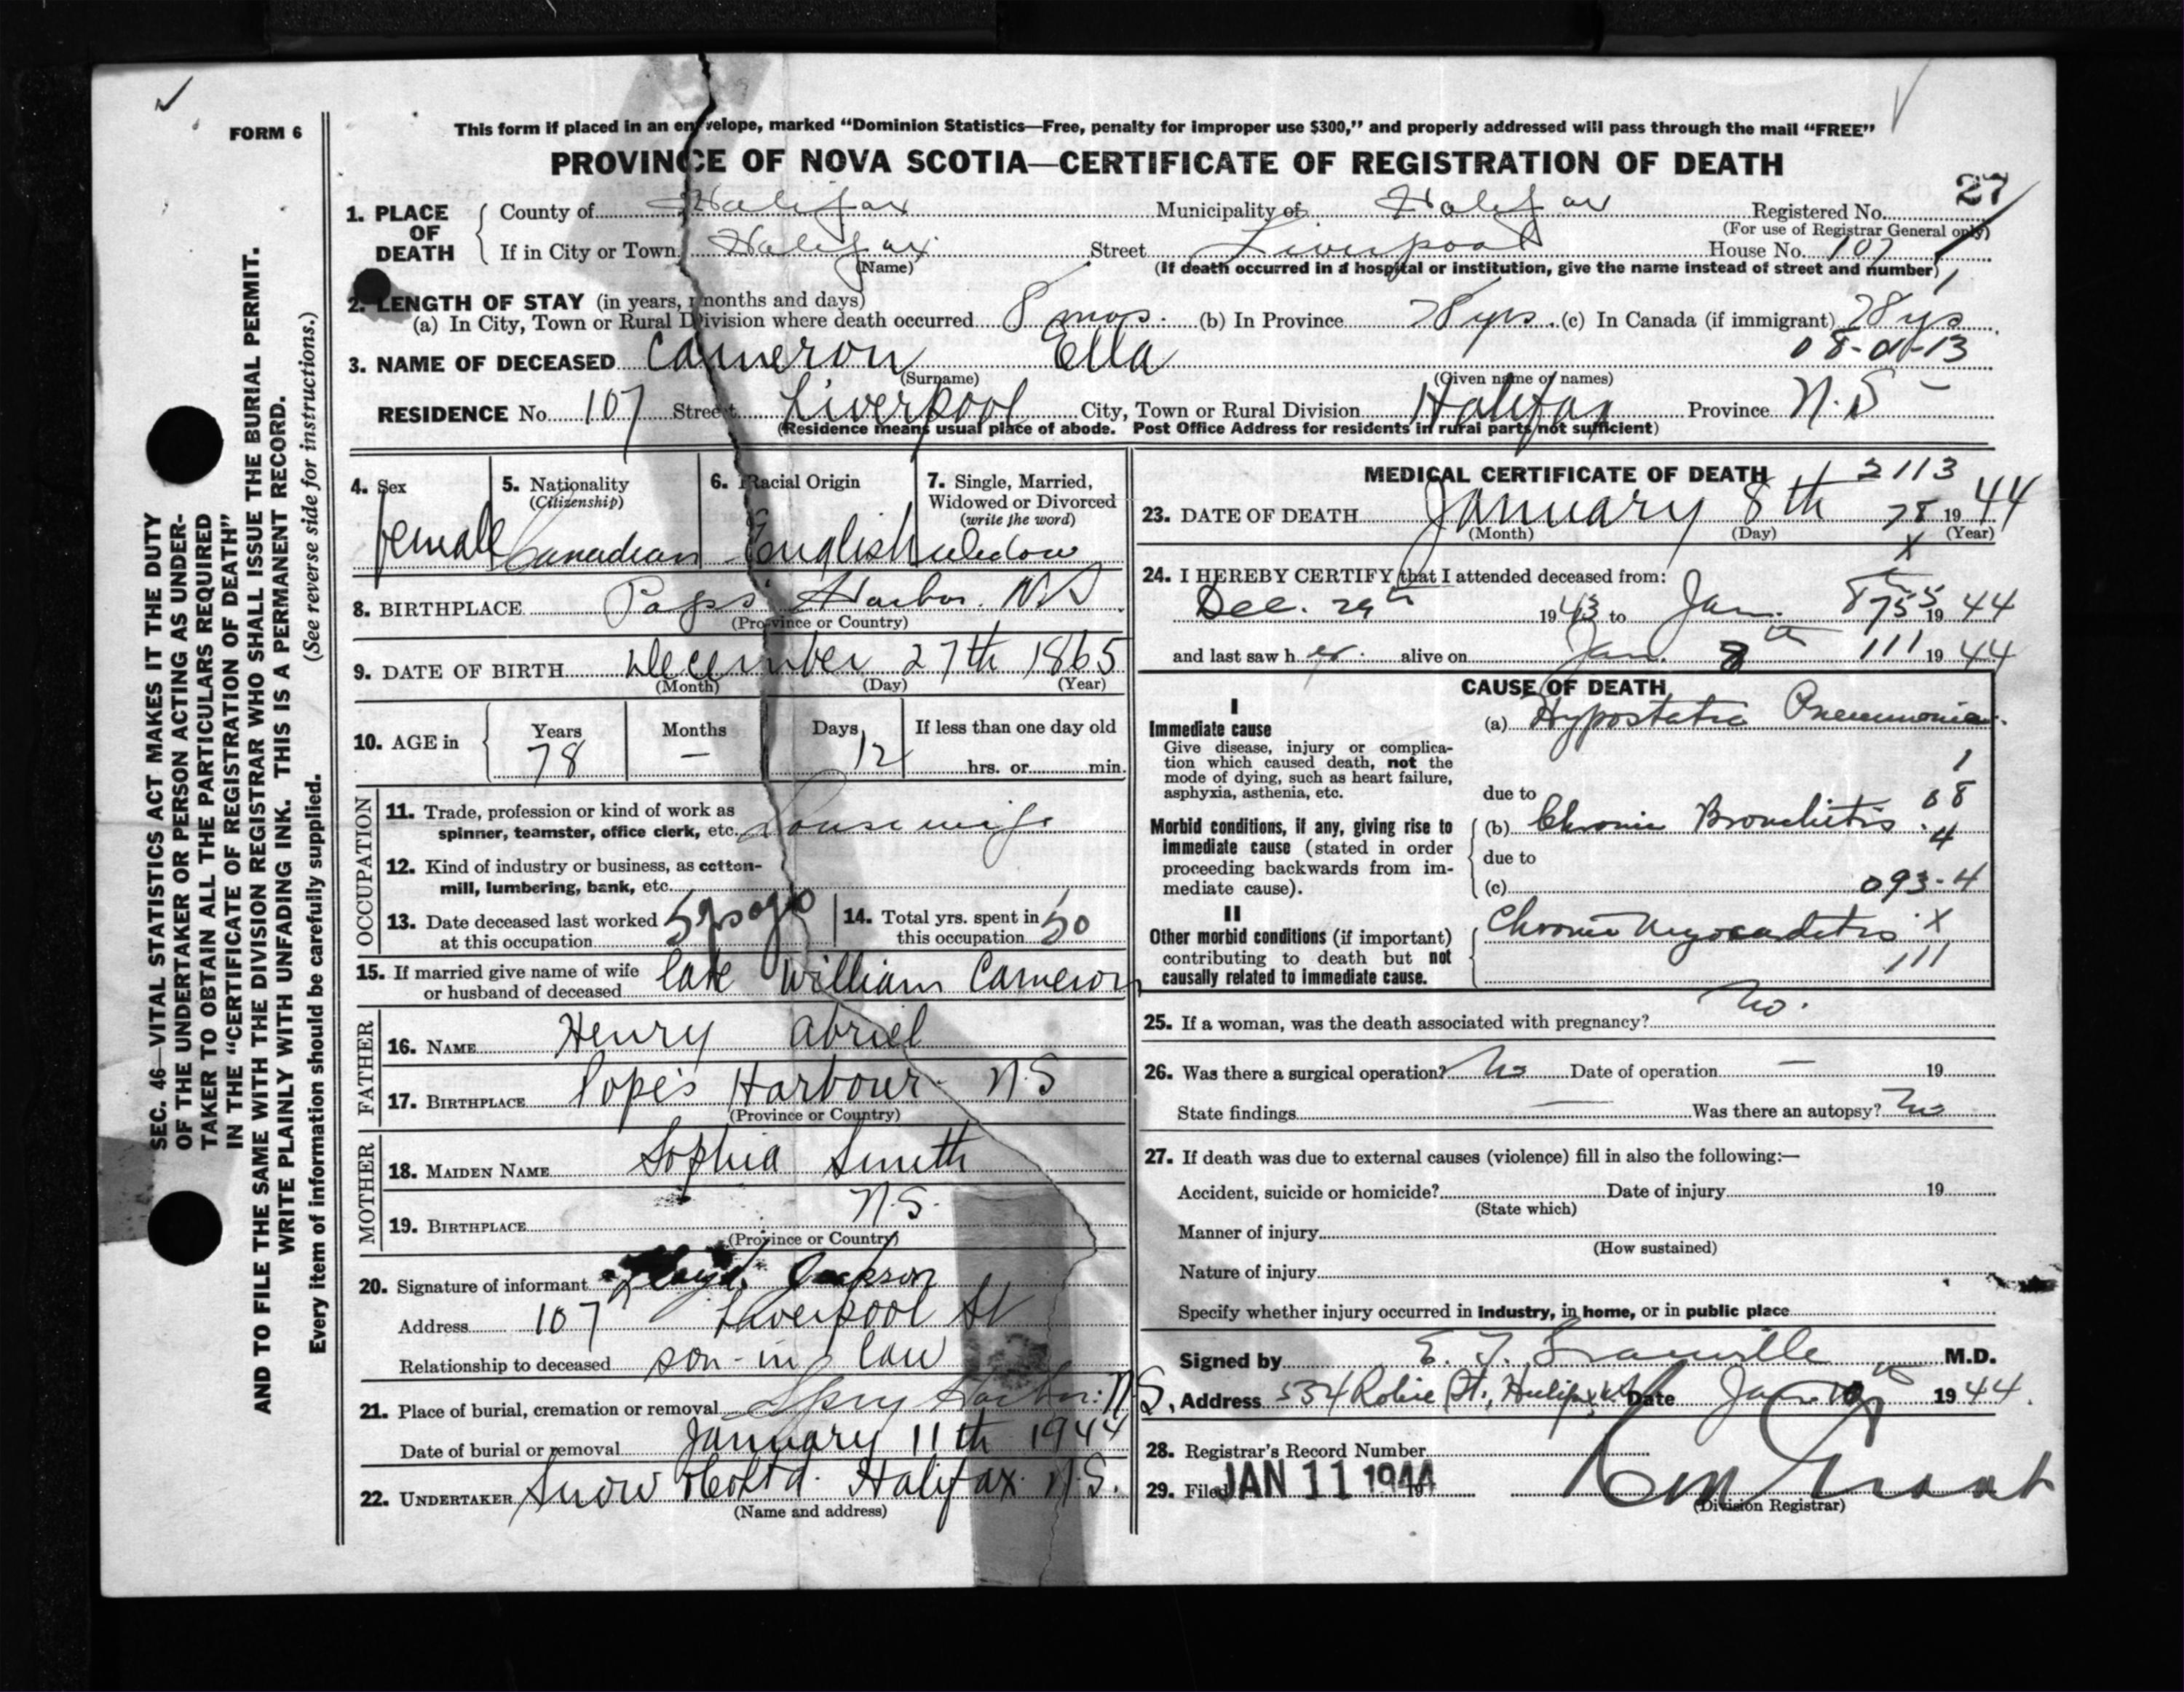 FORM 6
This form if placed in an envelope, marked “Dominion Statistics—Free, penalty for improper use $300,” and properly addressed will pass through the mail “FREE”
PROVINCE OF NOVA SCOTIA—CERTIFICATE OF REGISTRATION OF DEATH
27
1. PLACE OF DEATH County of Halifax Municipality of Halifax Registered No.
(For use of Registrar General only)
If in City or Town Halifax Street Liverpool House No. 107
(Name) (If death occurred in a hospital or institution, give the name instead of street and number)
2. LENGTH OF STAY (in years, months and days)
(a) In City, Town or Rural Division where death occurred 8 mos. (b) In Province 78 yrs. (c) In Canada (if immigrant) 78 ys
3. NAME OF DECEASED Cameron Ella 08-01-13
(Surname) (Given name or names)
RESIDENCE No. 107 Street Liverpool City, Town or Rural Division Halifax Province N.S—
(Residence means usual place of abode. Post Office Address for residents in rural parts not sufficient)
4. Sex 5. Nationality 6. Racial Origin 7. Single, Married,
(Citizenship) Widowed or Divorced
(write the word)
female Canadian English widow
8. BIRTHPLACE Harbor. NS
(Province or Country)
9. DATE OF BIRTH December 27th 1865
(Month) (Day) (Year)
10. AGE in Years Months Days If less than one day old
78 — 12 hrs. or min.
OCCUPATION
11. Trade, profession or kind of work as
spinner, teamster, office clerk, etc. Housewife
12. Kind of industry or business, as cotton-
mill, lumbering, bank, etc.
13. Date deceased last worked 14. Total yrs. spent in
at this occupation this occupation 50
15. If married give name of wife
or husband of deceased late William Cameron
FATHER
16. NAME Henry Abriel
17. BIRTHPLACE Pope's Harbour N.S
(Province or Country)
MOTHER
18. MAIDEN NAME Sophia Smith
19. BIRTHPLACE N.S.
(Province or Country)
20. Signature of informant Lloyd Jackson
Address 107 Liverpool St
Relationship to deceased son-in law
21. Place of burial, cremation or removal Spry Harbor: N.S.
Date of burial or removal January 11th 1944
22. UNDERTAKER Snow & Co Ltd. Halifax N.S.
(Name and address)
MEDICAL CERTIFICATE OF DEATH 2113
23. DATE OF DEATH January 8th 78 1944
(Month) (Day) (Year)
X
24. I HEREBY CERTIFY that I attended deceased from:
Dec. 29th 1943 to Jan. 8th 755 1944
and last saw her alive on Jan. 8th 111 1944
CAUSE OF DEATH
I
Immediate cause (a) Hypostatic Pneumonia.
Give disease, injury or complica-
tion which caused death, not the
mode of dying, such as heart failure,
asphyxia, asthenia, etc.
1
due to 08
Morbid conditions, if any, giving rise to
immediate cause (stated in order
proceeding backwards from im-
mediate cause).
(b) Chronic Bronchitis. 4
due to
(c) 093-4
II
Other morbid conditions (if important)
contributing to death but not
causally related to immediate cause.
Chronic Myocarditis X
111
25. If a woman, was the death associated with pregnancy? No.
26. Was there a surgical operation? No Date of operation — 19
State findings — Was there an autopsy? No
27. If death was due to external causes (violence) fill in also the following:—
Accident, suicide or homicide? Date of injury 19
(State which)
Manner of injury
(How sustained)
Nature of injury
Specify whether injury occurred in industry, in home, or in public place
Signed by E. F. Granville M.D.
Address 554 Robie St., Halifax Date Jan. 10th 1944.
28. Registrar's Record Number
29. Filed JAN 11 1944
(Division Registrar)
SEC. 46—VITAL STATISTICS ACT MAKES IT THE DUTY
OF THE UNDERTAKER OR PERSON ACTING AS UNDER-
TAKER TO OBTAIN ALL THE PARTICULARS REQUIRED
IN THE “CERTIFICATE OF REGISTRATION OF DEATH”
AND TO FILE THE SAME WITH THE DIVISION REGISTRAR WHO SHALL ISSUE THE BURIAL PERMIT.
WRITE PLAINLY WITH UNFADING INK. THIS IS A PERMANENT RECORD.
Every item of information should be carefully supplied. (See reverse side for instructions.)